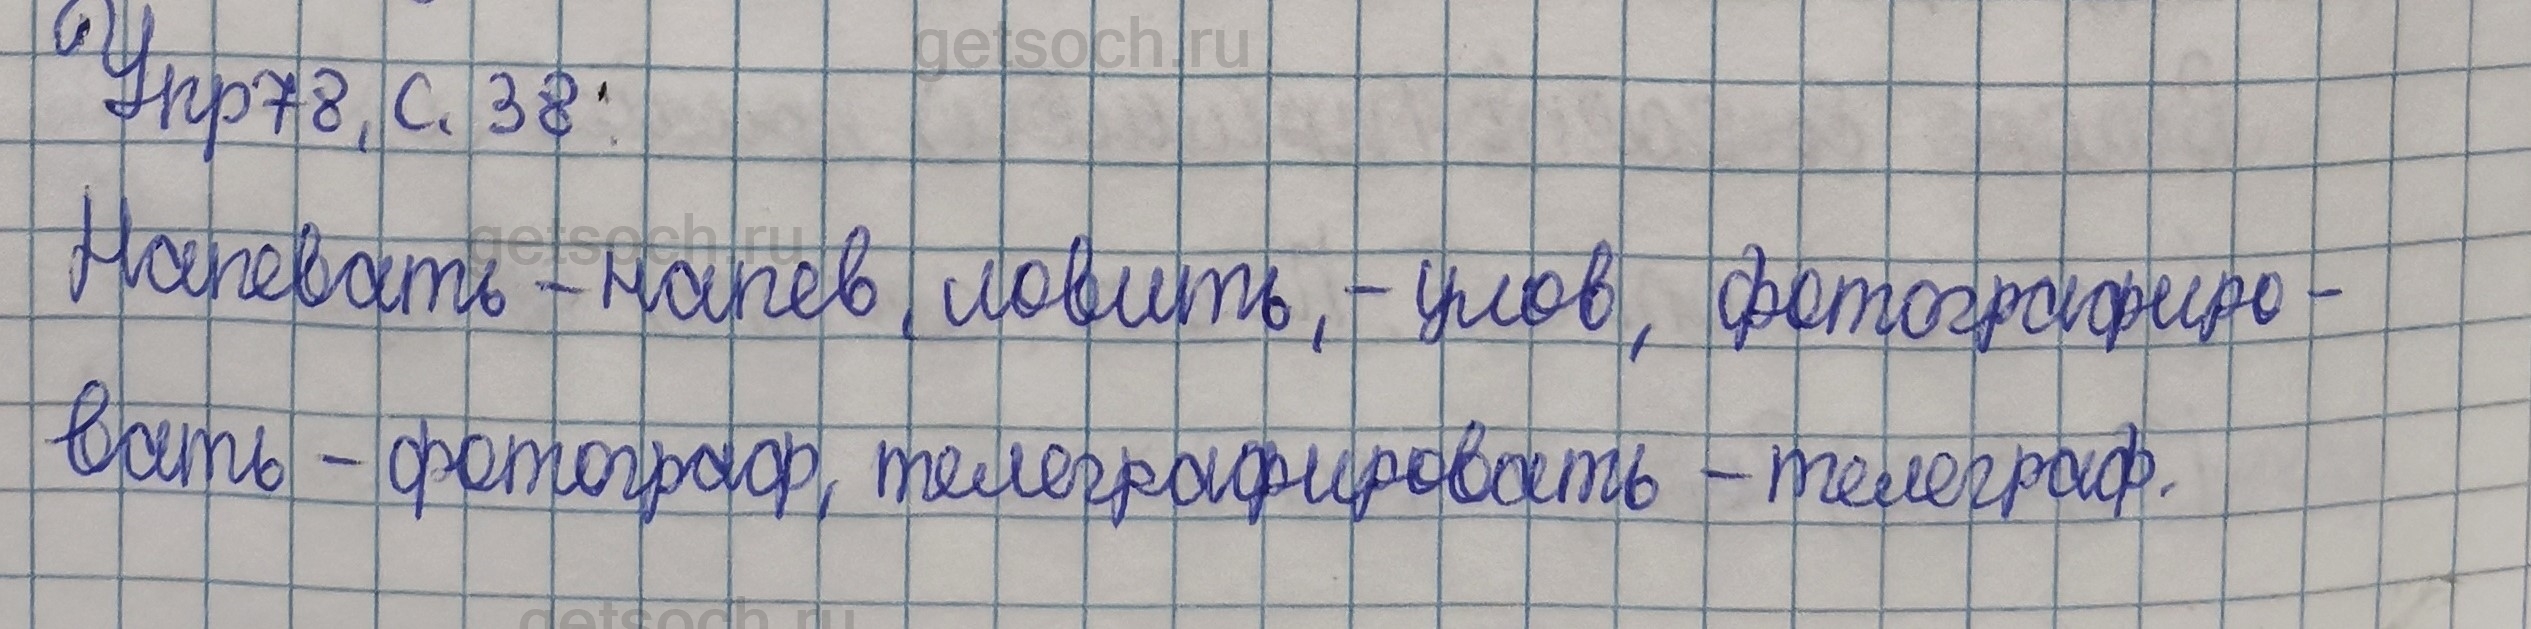 getsoch.ru
Упр78, с. 38:
getsoch.ru
Напевать - напев, ловить, - улов, фотографиро-
вать - фотограф, телеграфировать - телеграф.
getsoch.ru